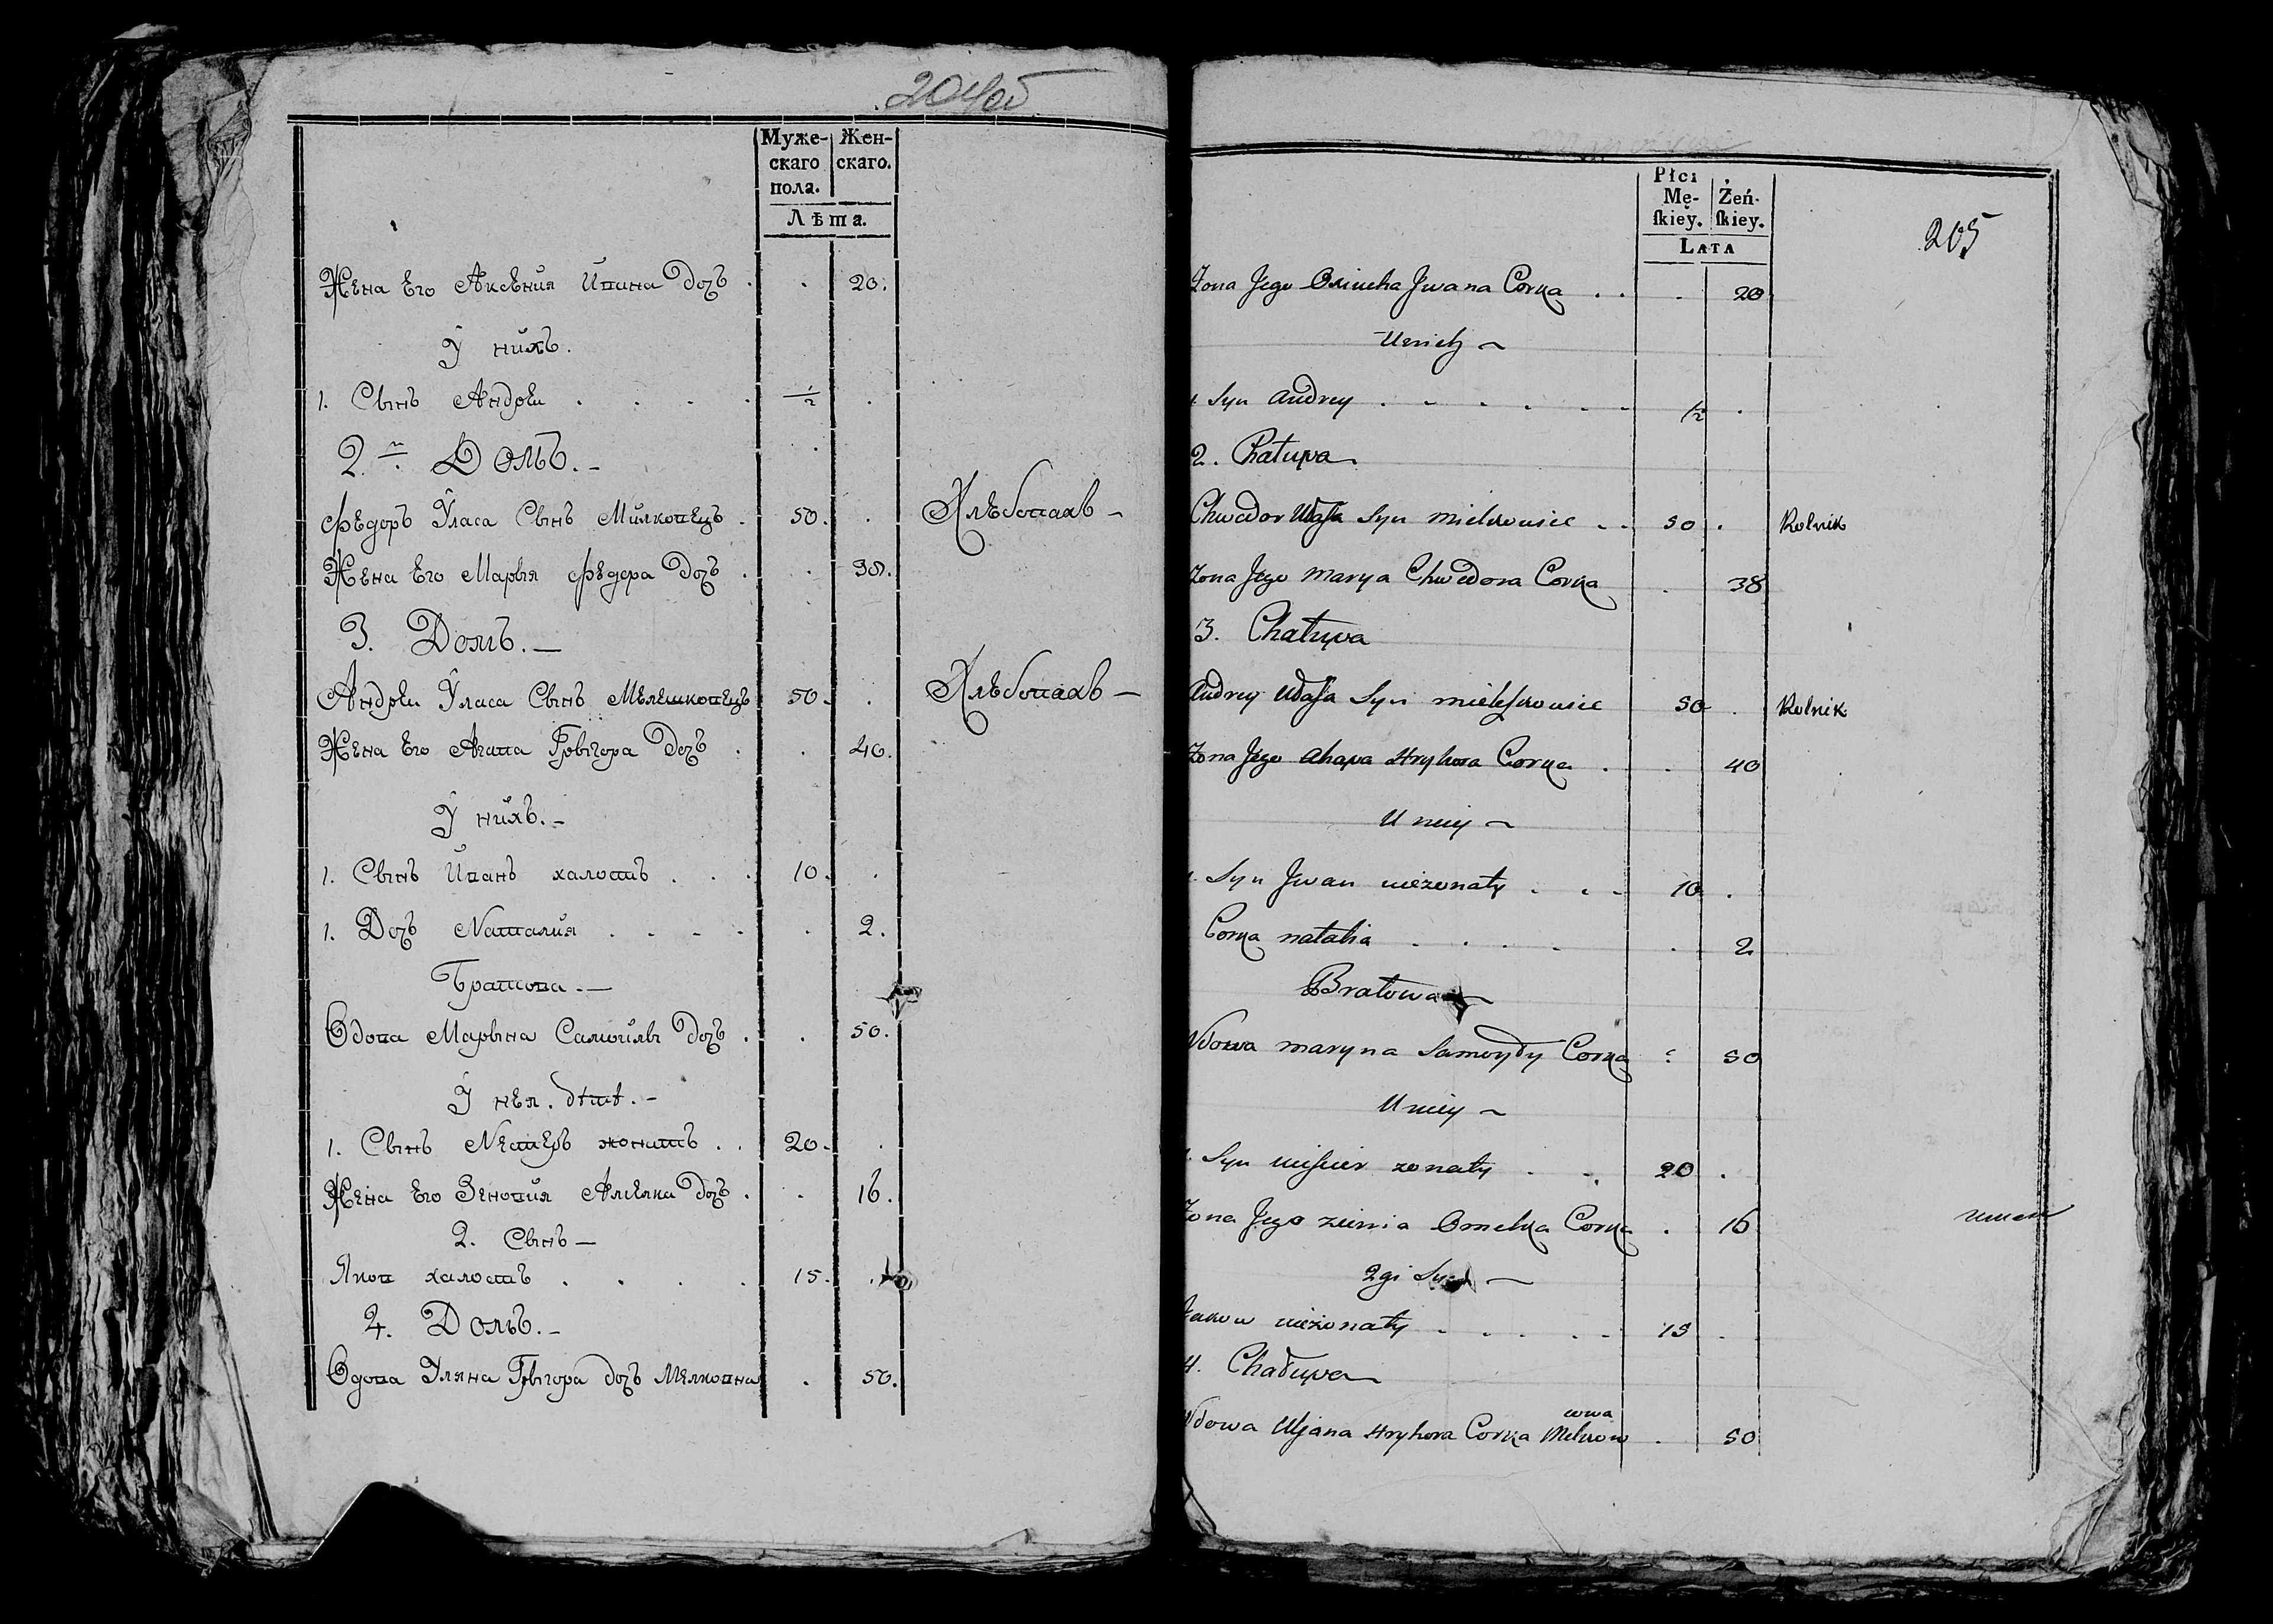 204об
Муже-
скаго
пола.
Жен-
скаго.
Лѣта.
Жена Его Аксения Ивана Дочь . . 20.
У нихъ.
1. Сынъ Андрей . . . . 1/2 .
2. Домъ. –
Федоръ Уласа Сынъ Милковецъ . 50. . Хлебопахъ –
Жена Его Марья Федора Дочь . . 38.
3. Домъ. –
Андрей Уласа Сынъ Мелешковецъ 50. . Хлебопахъ –
Жена Его Агапа Грыгора Дочь . . 40.
У нихъ. –
1. Сынъ Иванъ халостъ . . . 10. .
1. Дочь Nаталия . . . . . 2.
Братова. –
Вдова Марына Самойлы Дочь . . 50.
У нея. дѣтѣ. –
1. Сынъ Nестеръ жонатъ . . 20. .
Жена Его Зеновия Амеляна дочь . . 16.
2. Сынъ –
Яков халостъ . . . . 15. .
4. Домъ. –
Вдова Уляна Грыгора дочь Мелковна . 50.
205
Płci
Mę-
skiey.
Żeń-
skiey.
LATA
Zona Jego Jwana Corka . . . 20
Unich ~
1 Syn Andrey . . . . . . 1/2 .
2. Chatupa
Chwedor Ułasa Syn Mielkowiec . . 50 . Rolnik
Zona Jego Marya Chwedora Corka . 38
3. Chatupa
Andrey Ułasa Syn Mieleszkowiec 50 . Rolnik
Zona Jego Ahapa Hryhora Corka . . 40
U niey ~
1. Syn Jwan nieżonaty . . . 10 .
Corka Natalia . . . . . 2
Bratowa –
Wdowa Maryna Samoyły Corka . 50
U niey ~
1. Syn żonaty . . 20 .
Zona Jego Omelka Corka . 16
2gi Syn –
Jakow nieżonaty . . . . . 15 .
4. Chałupa
Wdowa Uljana Hryhora Corka Melkow . 50
owna